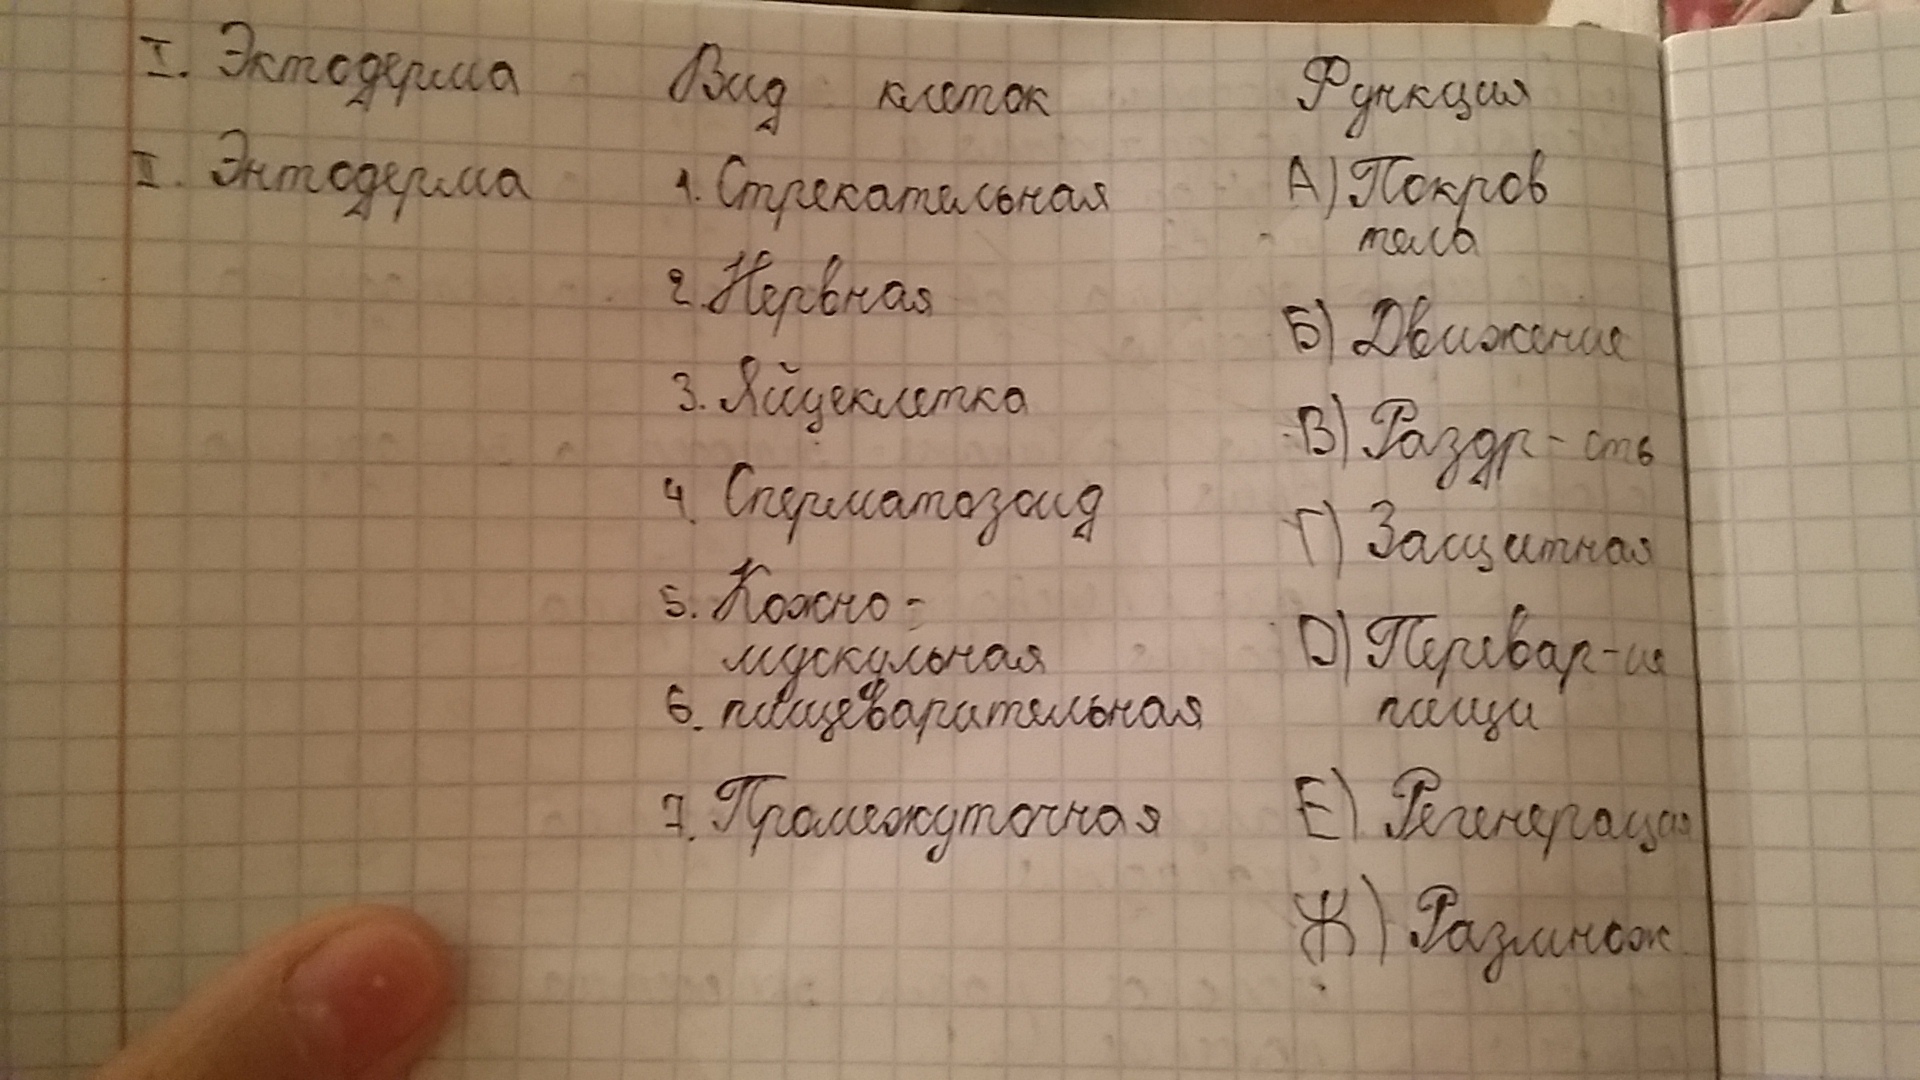 I. Эктодерма
II. Энтодерма
Вид клеток
1. Стрекательная
2. Нервная
3. Яйцеклетка
4. Сперматозоид
5. Кожно-
мускульная
6. пищеварительная
7. Промежуточная
Функция
А) Покров
тела
Б) Движение
В) Раздр-сть
Г) Защитная
D) Перевар-ия
пищи
Е) Регенерация
Ж) Размнож